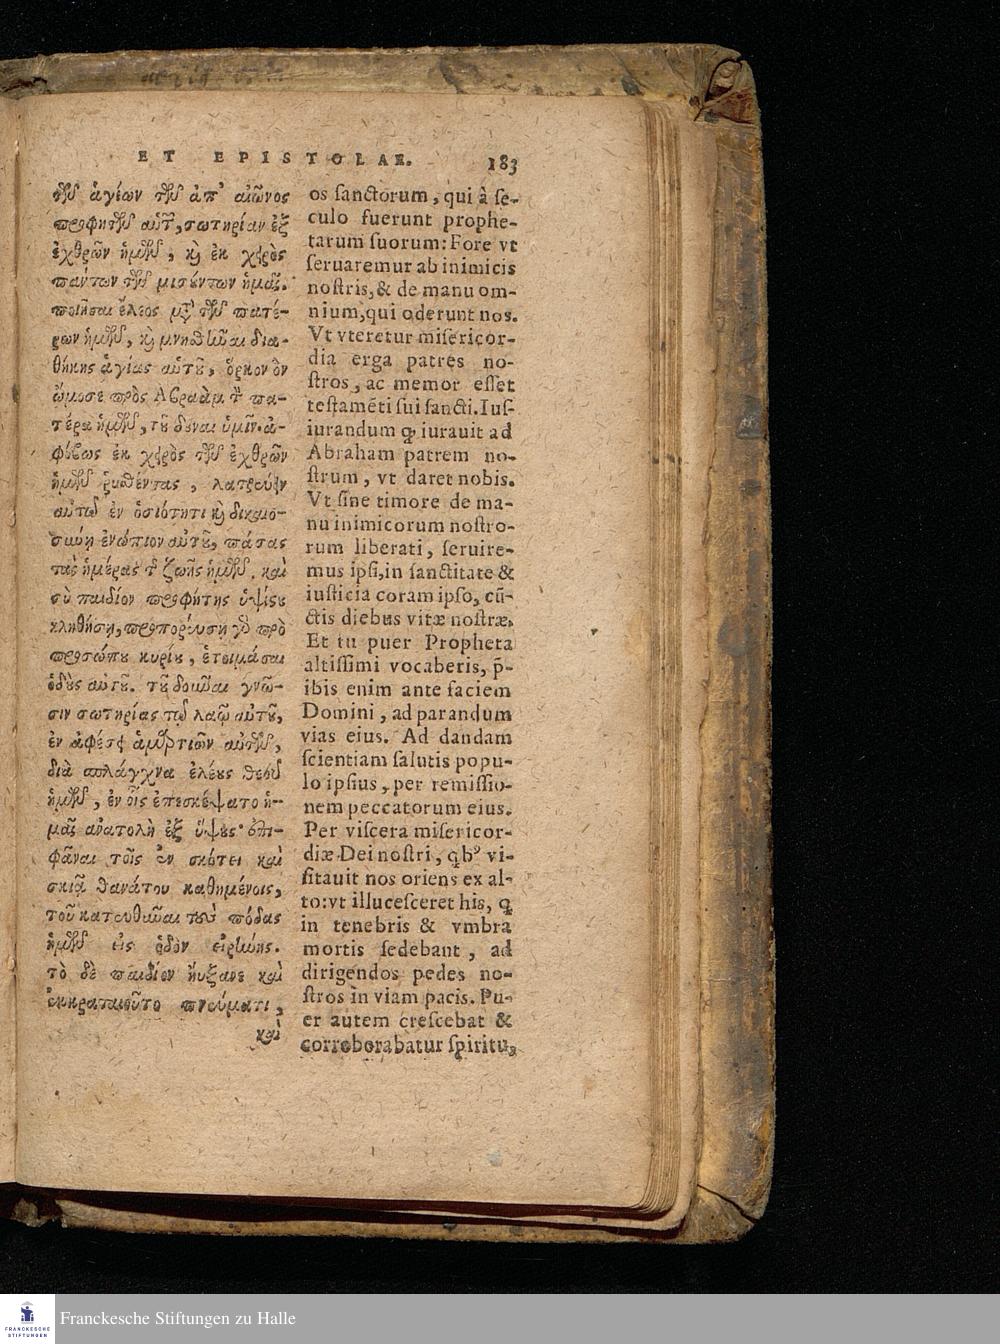 ET EPISTOLAE. 183
τῶν ἁγίων τῶν ἀπ' αἰῶνος
προφητῶν αὐτοῦ, σωτηρίαν ἐξ
ἐχθρῶν ἡμῶν, καὶ ἐκ χειρὸς
πάντων τῶν μισούντων ἡμᾶς.
ποιῆσαι ἔλεος μετὰ τῶν πατέ-
ρων ἡμῶν, καὶ μνησθῆναι δια-
θήκης ἁγίας αὐτοῦ, ὅρκον ὃν
ὤμοσε πρὸς Ἀβραὰμ τὸν πα-
τέρα ἡμῶν, τοῦ δοῦναι ὑμῖν. ἀ-
φόβως ἐκ χειρὸς τῶν ἐχθρῶν
ἡμῶν ῥυσθέντας, λατρεύειν
αὐτῷ ἐν ὁσιότητι καὶ δικαιο-
σύνῃ ἐνώπιον αὐτοῦ, πάσας
τὰς ἡμέρας τῆς ζωῆς ἡμῶν. καὶ
σὺ παιδίον προφήτης ὑψίστου
κληθήσῃ, προπορεύσῃ γὰρ πρὸ
προσώπου κυρίου, ἑτοιμάσαι
ὁδοὺς αὐτοῦ. τοῦ δοῦναι γνῶ-
σιν σωτηρίας τῷ λαῷ αὐτοῦ,
ἐν ἀφέσει ἁμαρτιῶν αὐτῶν,
διὰ σπλάγχνα ἐλέους θεοῦ
ἡμῶν, ἐν οἷς ἐπεσκέψατο ἡ-
μᾶς ἀνατολὴ ἐξ ὕψους· ἐπι-
φᾶναι τοῖς ἐν σκότει καὶ
σκιᾷ θανάτου καθημένοις,
τοῦ κατευθῦναι τοὺς πόδας
ἡμῶν εἰς ὁδὸν εἰρήνης.
τὸ δὲ παιδίον ηὔξανε καὶ
ἐκραταιοῦτο πνεύματι,
καὶ
os sanctorum, qui à se-
culo fuerunt prophe-
tarum suorum: Fore vt
seruaremur ab inimicis
nostris, & de manu om-
nium, qui oderunt nos.
Vt vteretur misericor-
dia erga patres no-
stros, ac memor esset
testamēti sui sancti. Ius-
iurandum ꝙ iurauit ad
Abraham patrem no-
strum, vt daret nobis.
Vt sine timore de ma-
nu inimicorum nostro-
rum liberati, seruire-
mus ipsi, in sanctitate &
iusticia coram ipso, cū-
ctis diebus vitæ nostræ.
Et tu puer Propheta
altissimi vocaberis, p̄-
ibis enim ante faciem
Domini, ad parandum
vias eius. Ad dandam
scientiam salutis popu-
lo ipsius, per remissio-
nem peccatorum eius.
Per viscera misericor-
diæ Dei nostri, qbꝰ vi-
sitauit nos oriens ex al-
to: vt illucesceret his, q
in tenebris & vmbra
mortis sedebant, ad
dirigendos pedes no-
stros in viam pacis. Pu-
er autem crescebat &
corroborabatur spiritu,
FRANCKESCHE STIFTUNGEN
Franckesche Stiftungen zu Halle